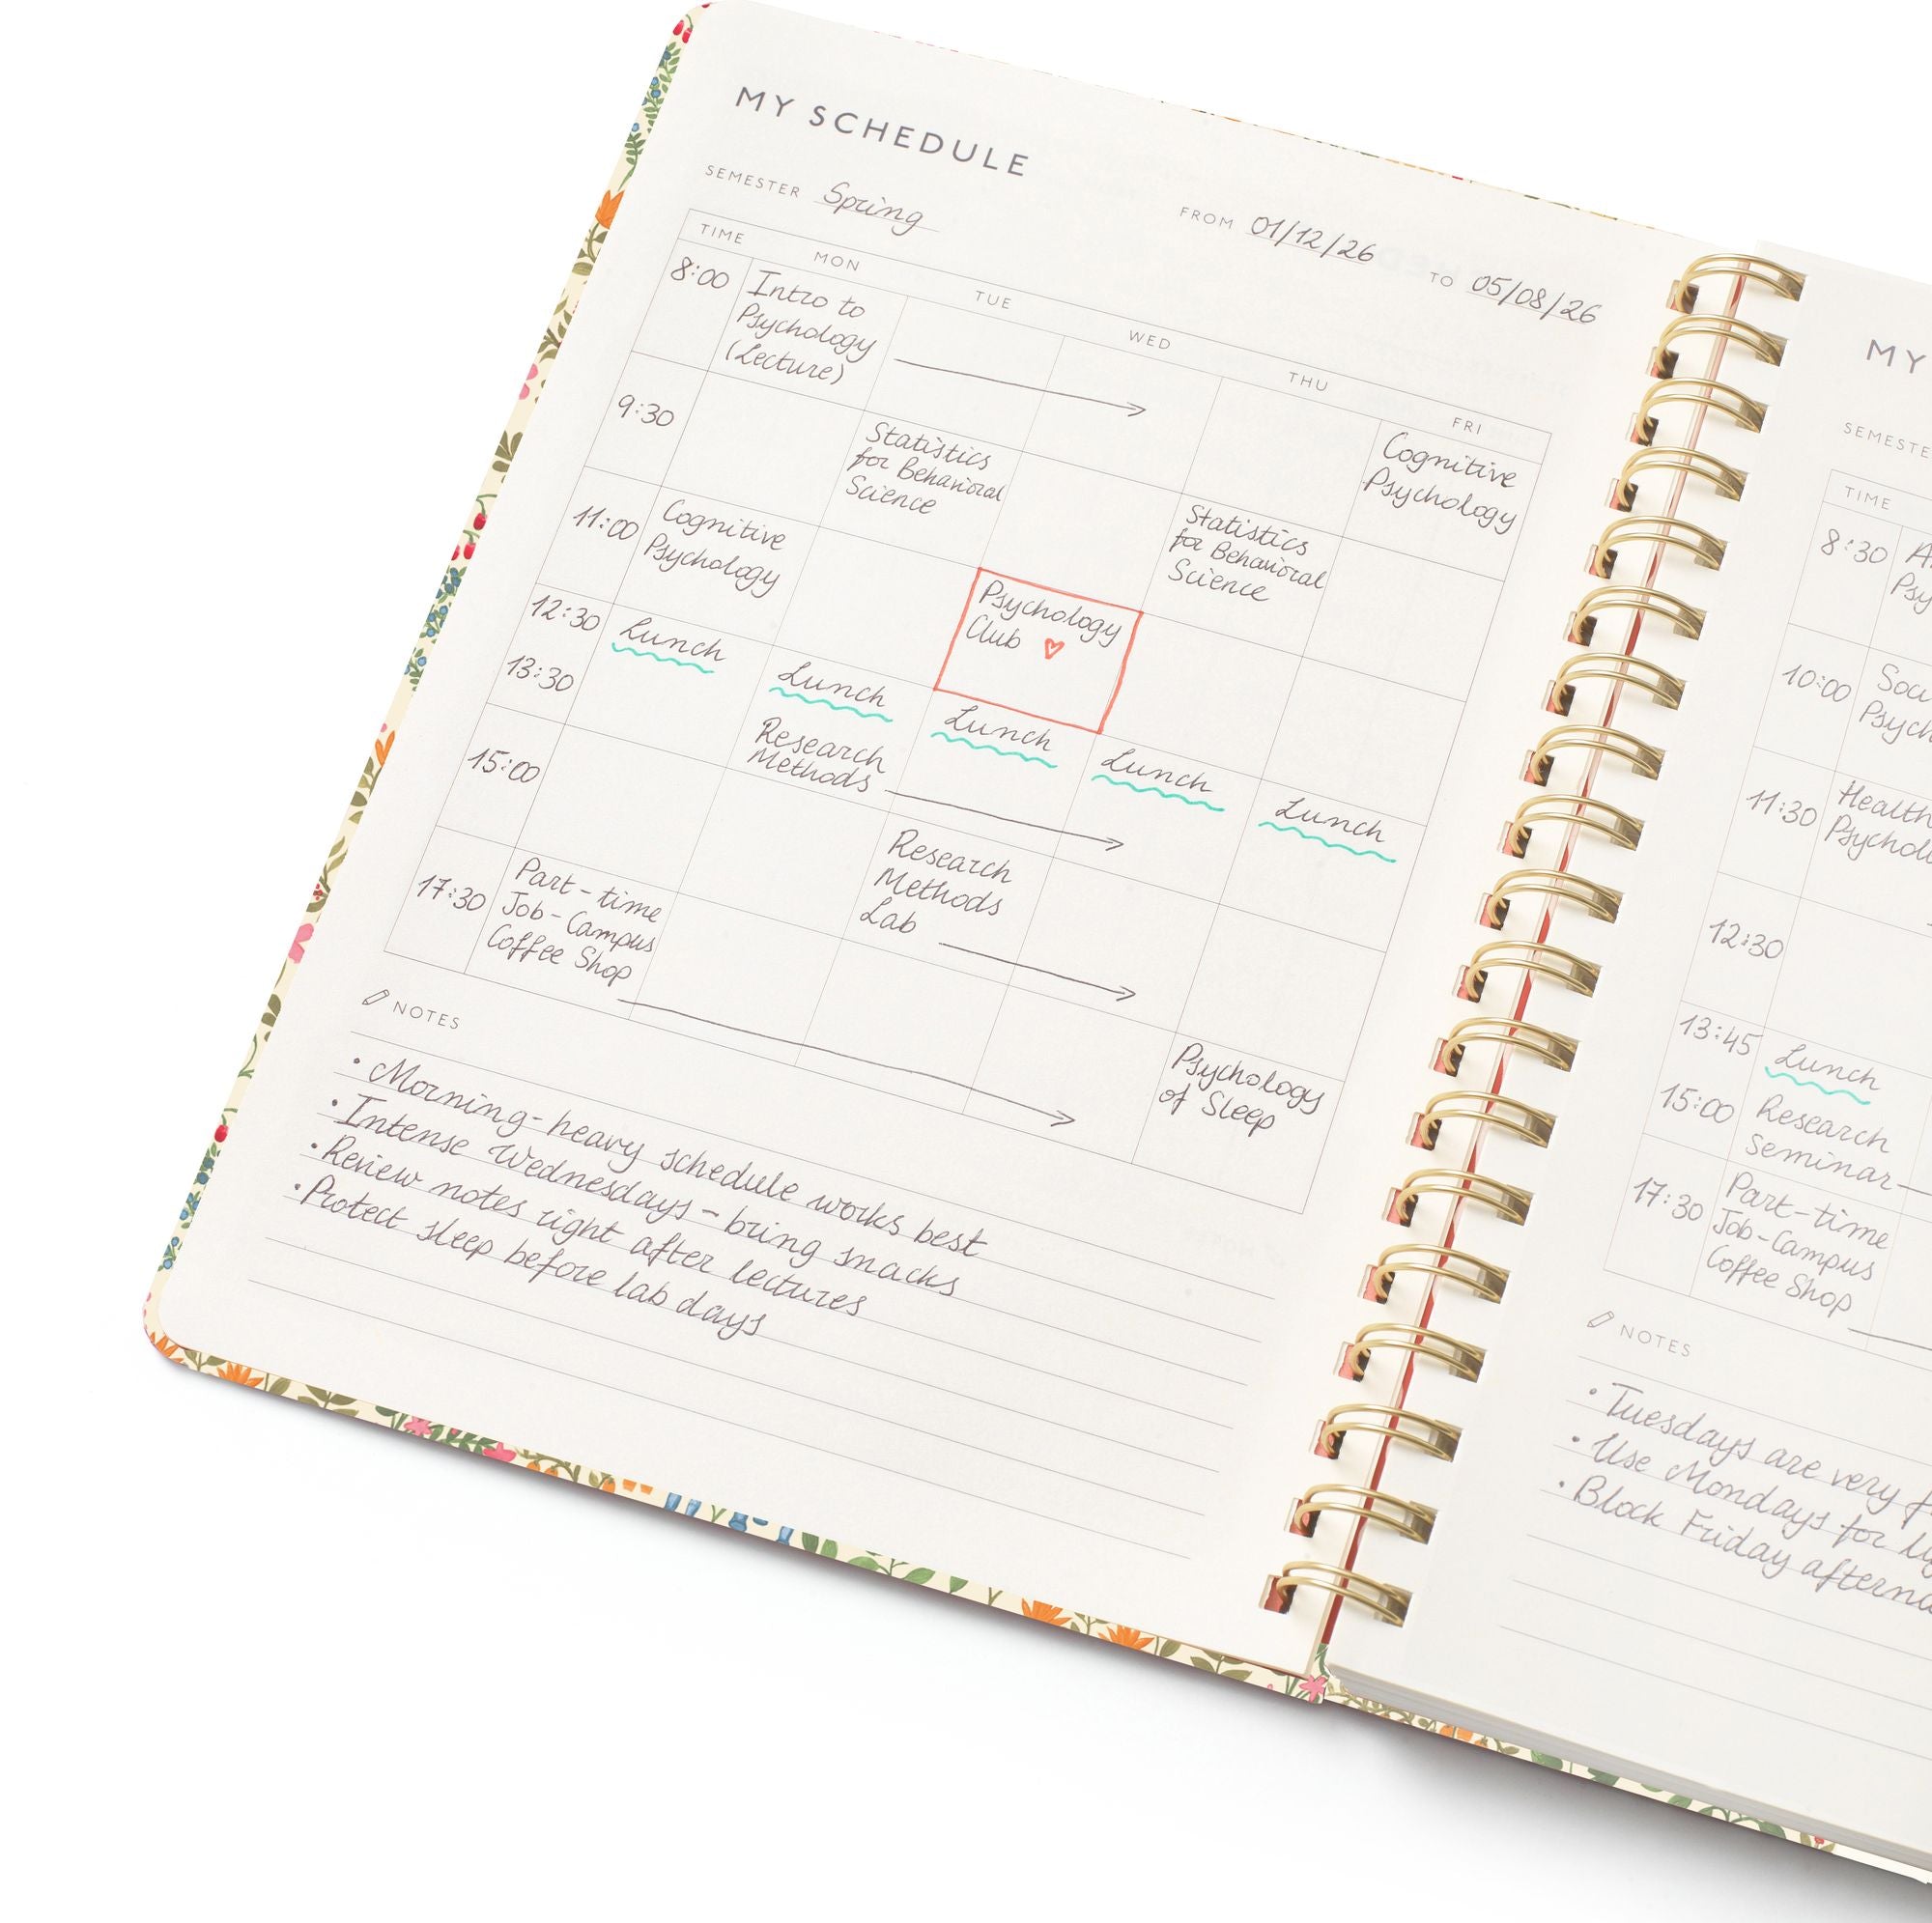 MY SCHEDULE
SEMESTER Spring
FROM 01/12/26
TO 05/08/26
TIME MON TUE WED THU FRI
8:00
Intro to
Psychology
(Lecture)
Cognitive
Psychology
9:30
Statistics
for Behavioral
Science
Statistics
for Behavioral
Science
11:00
Cognitive
Psychology
Psychology
Club
12:30
Lunch
Lunch
Lunch
Lunch
Lunch
13:30
Research
Methods
15:00
Research
Methods
Lab
17:30
Part-time
Job-Campus
Coffee Shop
Psychology
of Sleep
NOTES
• Morning-heavy schedule works best
• Intense Wednesdays - bring snacks
• Review notes right after lectures
• Protect sleep before lab days
MY
TIME
8:30
10:00
11:30
Health
12:30
13:45
Lunch
15:00
Research
Seminar
17:30
Part-time
Job-Campus
Coffee Shop
NOTES
• Tuesdays are very
• Use Mondays for
• Block Friday